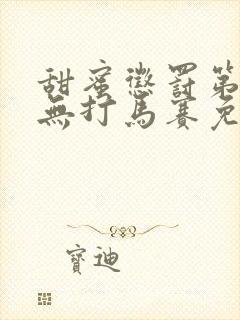 甜蜜懲罰第
無打馬賽免
寶迪